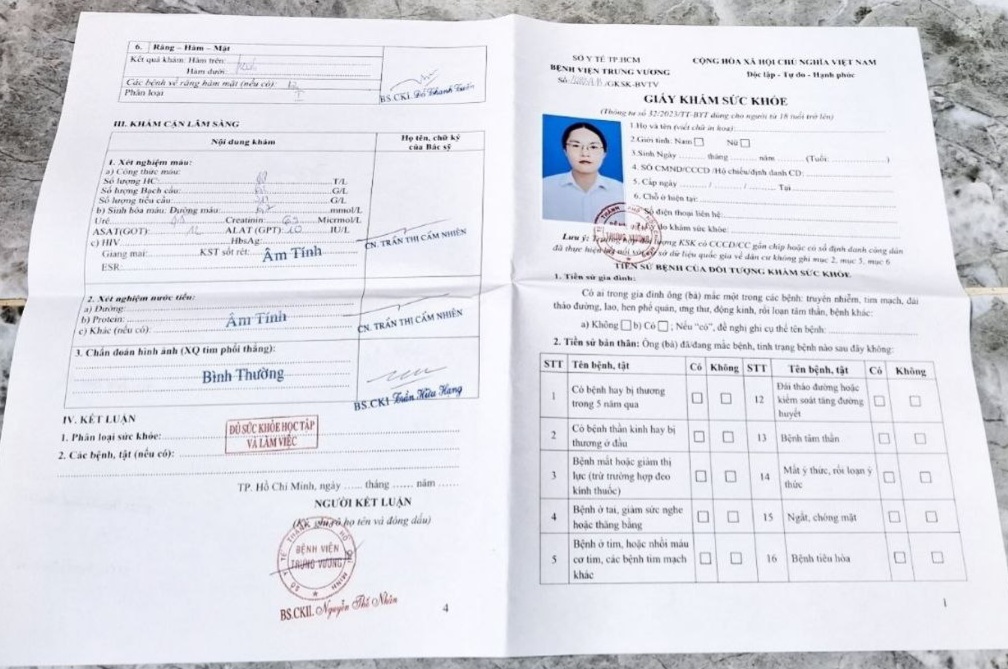 6. Răng – Hàm – Mặt
Kết quả khám: Hàm trên:
Hàm dưới:
Các bệnh về răng hàm mặt (nếu có):
Phân loại
BS.CKI. Đỗ Thanh Tuấn
III. KHÁM CẬN LÂM SÀNG
Nội dung khám
Họ tên, chữ ký
của Bác sỹ
1. Xét nghiệm máu:
a) Công thức máu:
Số lượng HC: T/L
Số lượng Bạch cầu: G/L
Số lượng tiểu cầu: G/L
b) Sinh hóa máu: Đường máu: mmol/L
Urê: Creatinin: Micrmol/L
ASAT(GOT): ALAT (GPT): IU/L
c) HIV HbsAg
Giang mai: KST sốt rét: Âm Tính
ESR:
CN. TRẦN THỊ CẨM NHIÊN
2. Xét nghiệm nước tiểu:
a) Đường:
b) Protein: Âm Tính
c) Khác (nếu có):
CN. TRẦN THỊ CẨM NHIÊN
3. Chẩn đoán hình ảnh (XQ tim phổi thẳng):
Bình Thường
BS.CKI Trần Hữu Hang
IV. KẾT LUẬN
1. Phân loại sức khỏe:
ĐỦ SỨC KHỎE HỌC TẬP
VÀ LÀM VIỆC
2. Các bệnh, tật (nếu có):
TP. Hồ Chí Minh, ngày ..... tháng ..... năm .....
NGƯỜI KẾT LUẬN
họ tên và đóng dấu)
BỆNH VIỆN
TRƯNG VƯƠNG
BS.CKII. Nguyễn Thế Nhân
4
SỞ Y TẾ TP.HCM
BỆNH VIỆN TRƯNG VƯƠNG
Số /GKSK-BVTV
CỘNG HÒA XÃ HỘI CHỦ NGHĨA VIỆT NAM
Độc lập - Tự do - Hạnh phúc
GIẤY KHÁM SỨC KHỎE
(Thông tư số 32/2023/TT-BYT dùng cho người từ 18 tuổi trở lên)
1. Họ và tên (viết chữ in hoa):
2. Giới tính: Nam □ Nữ □
3. Sinh Ngày ..... tháng ..... năm ..... (Tuổi: ..... )
4. Số CMND/CCCD /Hộ chiếu/định danh CD:
5. Cấp ngày ..... / ..... / ..... Tại
6. Chỗ ở hiện tại:
Số điện thoại liên hệ:
do khám sức khỏe:
TRƯNG VƯƠNG
Lưu ý: Trường hợp đối tượng KSK có CCCD/CC gắn chip hoặc có số định danh công dân
đã thực hiện kết nối với cơ sở dữ liệu quốc gia về dân cư không ghi mục 2, mục 5, mục 6
TIỀN SỬ BỆNH CỦA ĐỐI TƯỢNG KHÁM SỨC KHỎE
1. Tiền sử gia đình:
Có ai trong gia đình ông (bà) mắc một trong các bệnh: truyền nhiễm, tim mạch, đái
tháo đường, lao, hen phế quản, ung thư, động kinh, rối loạn tâm thần, bệnh khác:
a) Không □ b) Có □ ; Nếu "có", đề nghị ghi cụ thể tên bệnh:
2. Tiền sử bản thân: Ông (bà) đã/đang mắc bệnh, tình trạng bệnh nào sau đây không:
STT Tên bệnh, tật Có Không STT Tên bệnh, tật Có Không
1 Có bệnh hay bị thương trong 5 năm qua □ □ 12 Đái tháo đường hoặc kiểm soát tăng đường huyết □ □
2 Có bệnh thần kinh hay bị thương ở đầu □ □ 13 Bệnh tâm thần □ □
3 Bệnh mắt hoặc giảm thị lực (trừ trường hợp đeo kính thuốc) □ □ 14 Mất ý thức, rối loạn ý thức □ □
4 Bệnh ở tai, giảm sức nghe hoặc thăng bằng □ □ 15 Ngất, chóng mặt □ □
5 Bệnh ở tim, hoặc nhồi máu cơ tim, các bệnh tim mạch khác □ □ 16 Bệnh tiêu hóa □ □
1